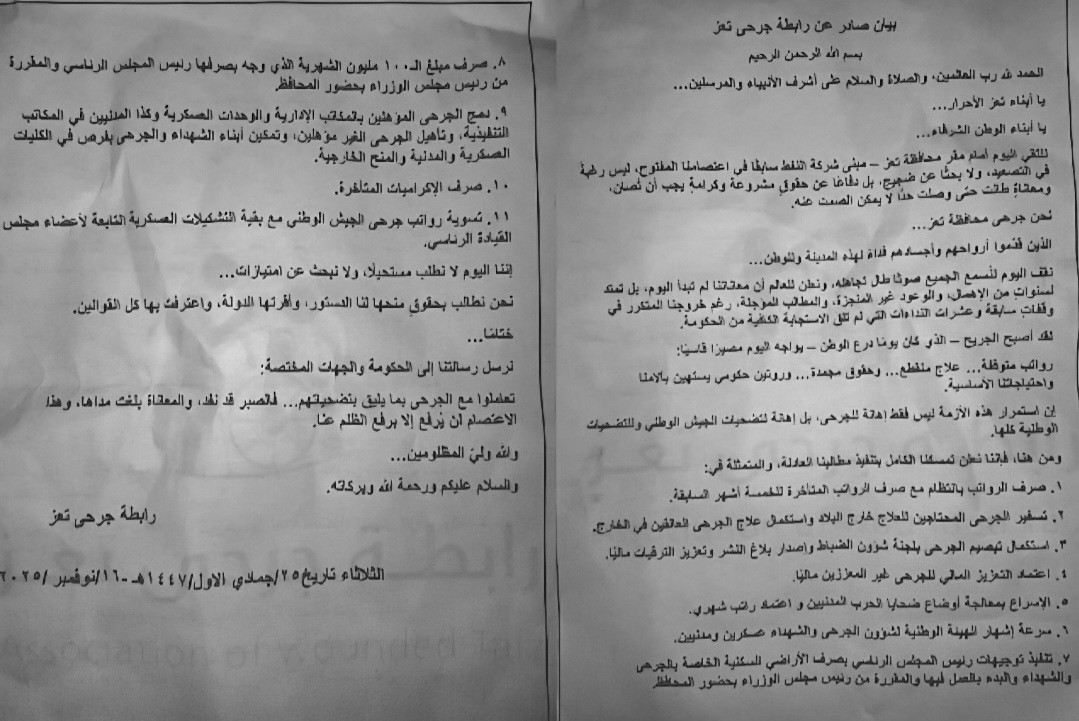 بيان صادر عن رابطة جرحى تعز
بسم الله الرحمن الرحيم
الحمد لله رب العالمين، والصلاة والسلام على أشرف الأنبياء والمرسلين...
يا أبناء تعز الأحرار...
يا أبناء الوطن الشرفاء...
نلتقي اليوم أمام مقر محافظة تعز – مبنى شركة النفط سابقًا في اعتصامنا المفتوح، ليس رغبة
في التصعيد، ولا بحثًا عن ضجيج، بل دفاعًا عن حقوقٍ مشروعة وكرامةٍ يجب أن تُصان،
ومعاناةٍ طالت حتى وصلت حدًا لا يمكن الصمت عنه.
نحن جرحى محافظة تعز...
الذين قدّموا أرواحهم وأجسادهم فداءً لهذه المدينة وللوطن...
نقف اليوم لنُسمع الجميع صوتًا طال تجاهله، ونعلن للعالم أن معاناتنا لم تبدأ اليوم، بل تمتد
لسنواتٍ من الإهمال، والوعود غير المنجزة، والمطالب المؤجلة، رغم خروجنا المتكرر في
وقفاتٍ سابقة وعشرات النداءات التي لم تلقَ الاستجابة الكافية من الحكومة.
لقد أصبح الجريح – الذي كان يومًا درع الوطن – يواجه اليوم مصيرًا قاسيًا:
رواتب متوقفة... علاج منقطع... وحقوق مجمدة... وروتين حكومي يستهين بآلامنا
واحتياجاتنا الأساسية.
إن استمرار هذه الأزمة ليس فقط إهانة للجرحى، بل إهانة لتضحيات الجيش الوطني وللتضحيات
الوطنية كلها.
ومن هنا، فإننا نعلن تمسكنا الكامل بتنفيذ مطالبنا العادلة، والمتمثلة في:
١. صرف الرواتب بانتظام مع صرف الرواتب المتأخرة للخمسة أشهر السابقة.
٢. تسفير الجرحى المحتاجين للعلاج خارج البلاد واستكمال علاج الجرحى العالقين في الخارج.
٣. استكمال تبصيم الجرحى بلجنة شؤون الضباط وإصدار بلاغ النشر وتعزيز الترقيات ماليًا.
٤. اعتماد التعزيز المالي للجرحى غير المعززين ماليًا.
٥. الإسراع بمعالجة أوضاع ضحايا الحرب المدنيين و اعتماد راتب شهري.
٦. سرعة إشهار الهيئة الوطنية لشؤون الجرحى والشهداء عسكرين ومدنيين.
٧. تنفيذ توجيهات رئيس المجلس الرئاسي بصرف الأراضي السكنية الخاصة بالجرحى
والشهداء والبدء بالعمل فيها والمقررة من رئيس مجلس الوزراء بحضور المحافظ.
٨. صرف مبلغ الـ١٠٠ مليون الشهرية الذي وجه بصرفها رئيس المجلس الرئاسي والمقررة
من رئيس مجلس الوزراء بحضور المحافظ.
٩. دمج الجرحى المؤهلين بالمكاتب الإدارية والوحدات العسكرية وكذا المدنيين في المكاتب
التنفيذية، وتأهيل الجرحى الغير مؤهلين، وتمكين أبناء الشهداء والجرحى بفرص في الكليات
العسكرية والمدنية والمنح الخارجية.
١٠. صرف الإكراميات المتأخرة.
١١. تسوية رواتب جرحى الجيش الوطني مع بقية التشكيلات العسكرية التابعة لأعضاء مجلس
القيادة الرئاسي.
إننا اليوم لا نطلب مستحيلًا، ولا نبحث عن امتيازات...
نحن نطالب بحقوقٍ منحها لنا الدستور، وأقرتها الدولة، واعترفت بها كل القوانين.
ختامًا...
نرسل رسالتنا إلى الحكومة والجهات المختصة:
تعاملوا مع الجرحى بما يليق بتضحياتهم... فالصبر قد نفد، والمعاناة بلغت مداها، وهذا
الاعتصام لن يُرفع إلا برفع الظلم عنا.
والله وليّ المظلومين...
والسلام عليكم ورحمة الله وبركاته.
رابطة جرحى تعز
الثلاثاء تاريخ٢٥/جمادي الاول/١٤٤٧هـ -١٦/نوفمبر /٢٠٢٥
Association of wounded Taiz